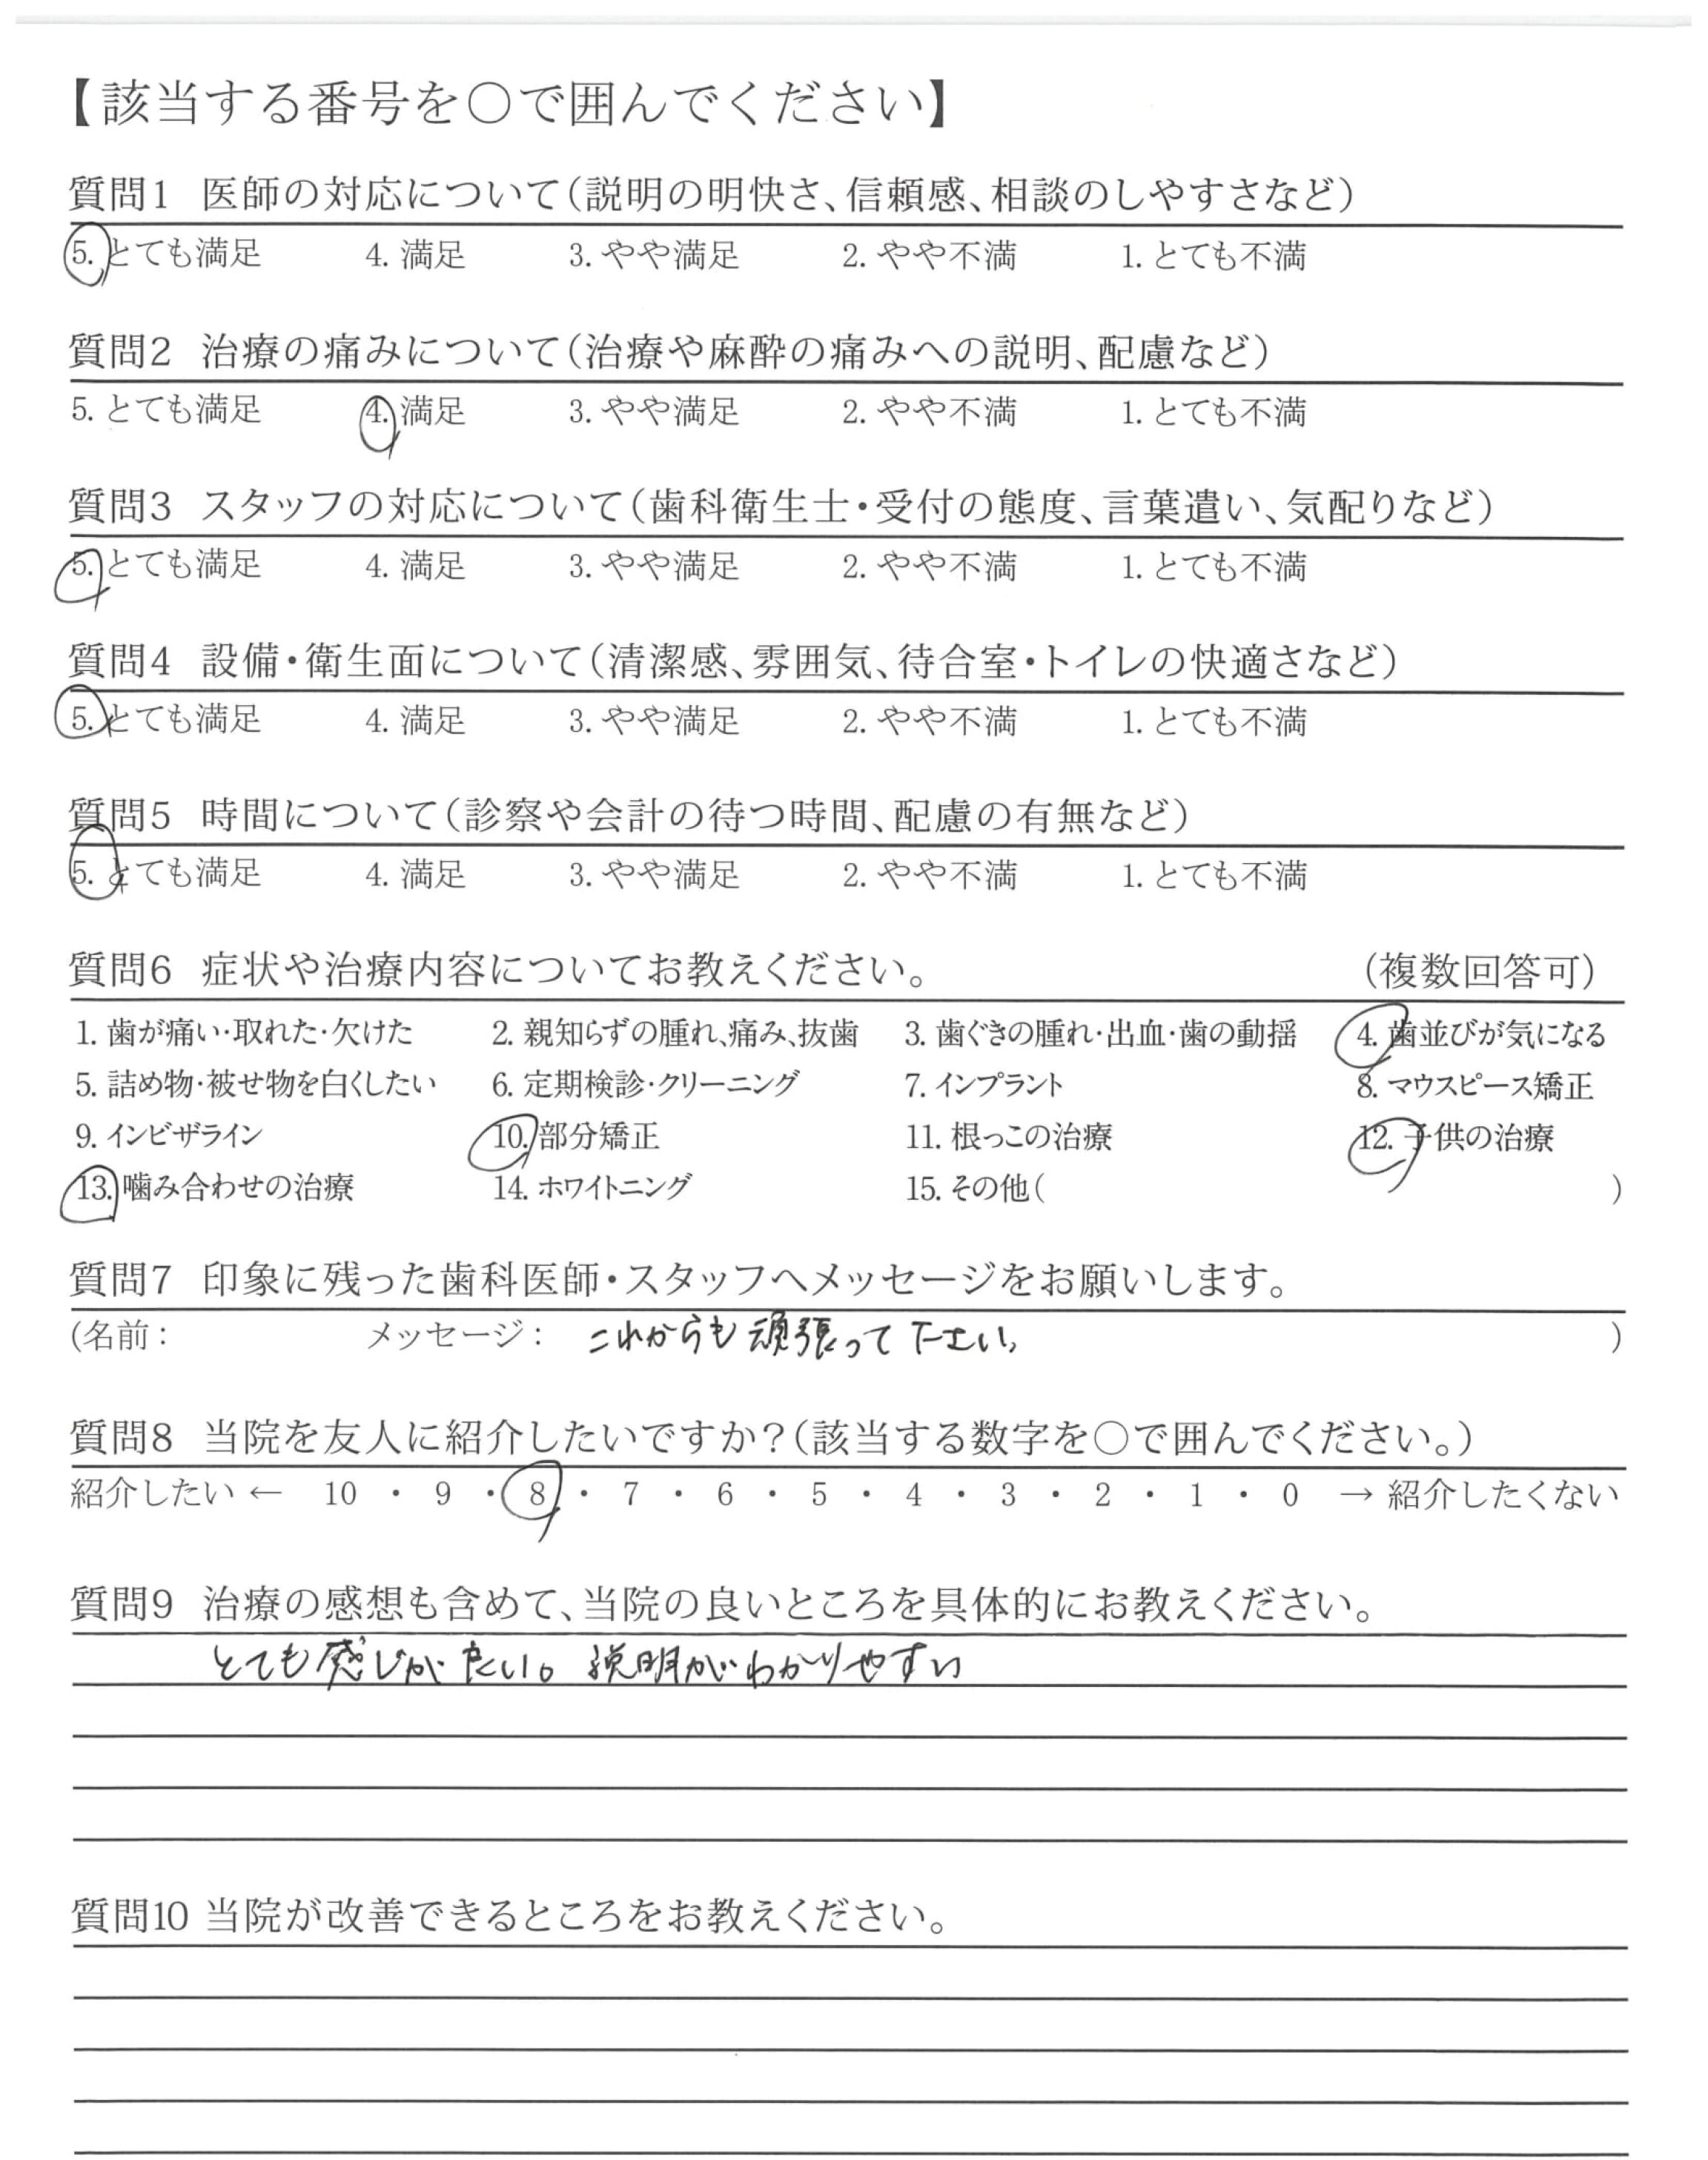 【該当する番号を○で囲んでください】
質問1 医師の対応について（説明の明快さ、信頼感、相談のしやすさなど）
5. とても満足 4. 満足 3. やや満足 2. やや不満 1. とても不満
質問2 治療の痛みについて（治療や麻酔の痛みへの説明、配慮など）
5. とても満足 4. 満足 3. やや満足 2. やや不満 1. とても不満
質問3 スタッフの対応について（歯科衛生士・受付の態度、言葉遣い、気配りなど）
5. とても満足 4. 満足 3. やや満足 2. やや不満 1. とても不満
質問4 設備・衛生面について（清潔感、雰囲気、待合室・トイレの快適さなど）
5. とても満足 4. 満足 3. やや満足 2. やや不満 1. とても不満
質問5 時間について（診察や会計の待つ時間、配慮の有無など）
5. とても満足 4. 満足 3. やや満足 2. やや不満 1. とても不満
質問6 症状や治療内容についてお教えください。 （複数回答可）
1. 歯が痛い・取れた・欠けた 2. 親知らずの腫れ、痛み、抜歯 3. 歯ぐきの腫れ・出血・歯の動揺 4. 歯並びが気になる
5. 詰め物・被せ物を白くしたい 6. 定期検診・クリーニング 7. インプラント 8. マウスピース矯正
9. インビザライン 10. 部分矯正 11. 根っこの治療 12. 子供の治療
13. 噛み合わせの治療 14. ホワイトニング 15. その他（ ）
質問7 印象に残った歯科医師・スタッフへメッセージをお願いします。
（名前： メッセージ： これからも頑張って下さい。 ）
質問8 当院を友人に紹介したいですか？（該当する数字を○で囲んでください。）
紹介したい ← 10 ・ 9 ・ 8 ・ 7 ・ 6 ・ 5 ・ 4 ・ 3 ・ 2 ・ 1 ・ 0 → 紹介したくない
質問9 治療の感想も含めて、当院の良いところを具体的にお教えください。
とても感じが良い。説明がわかりやすい
質問10 当院が改善できるところをお教えください。